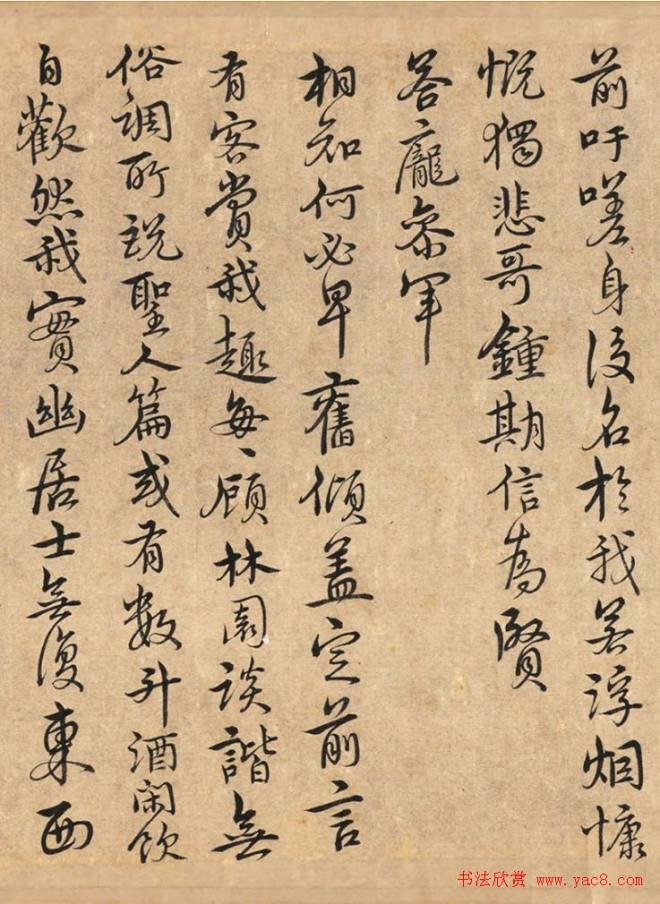 前吁嗟身後名於我若浮烟慷
慨獨悲哥鍾期信為賢
答龐參軍
相知何必早舊傾盖定前言
有客賞我趣每〻顧林園談諧無
俗調所説聖人篇或有數升酒闲飲
自歡然我實幽居士無復東西
书法欣赏 www.yac8.com